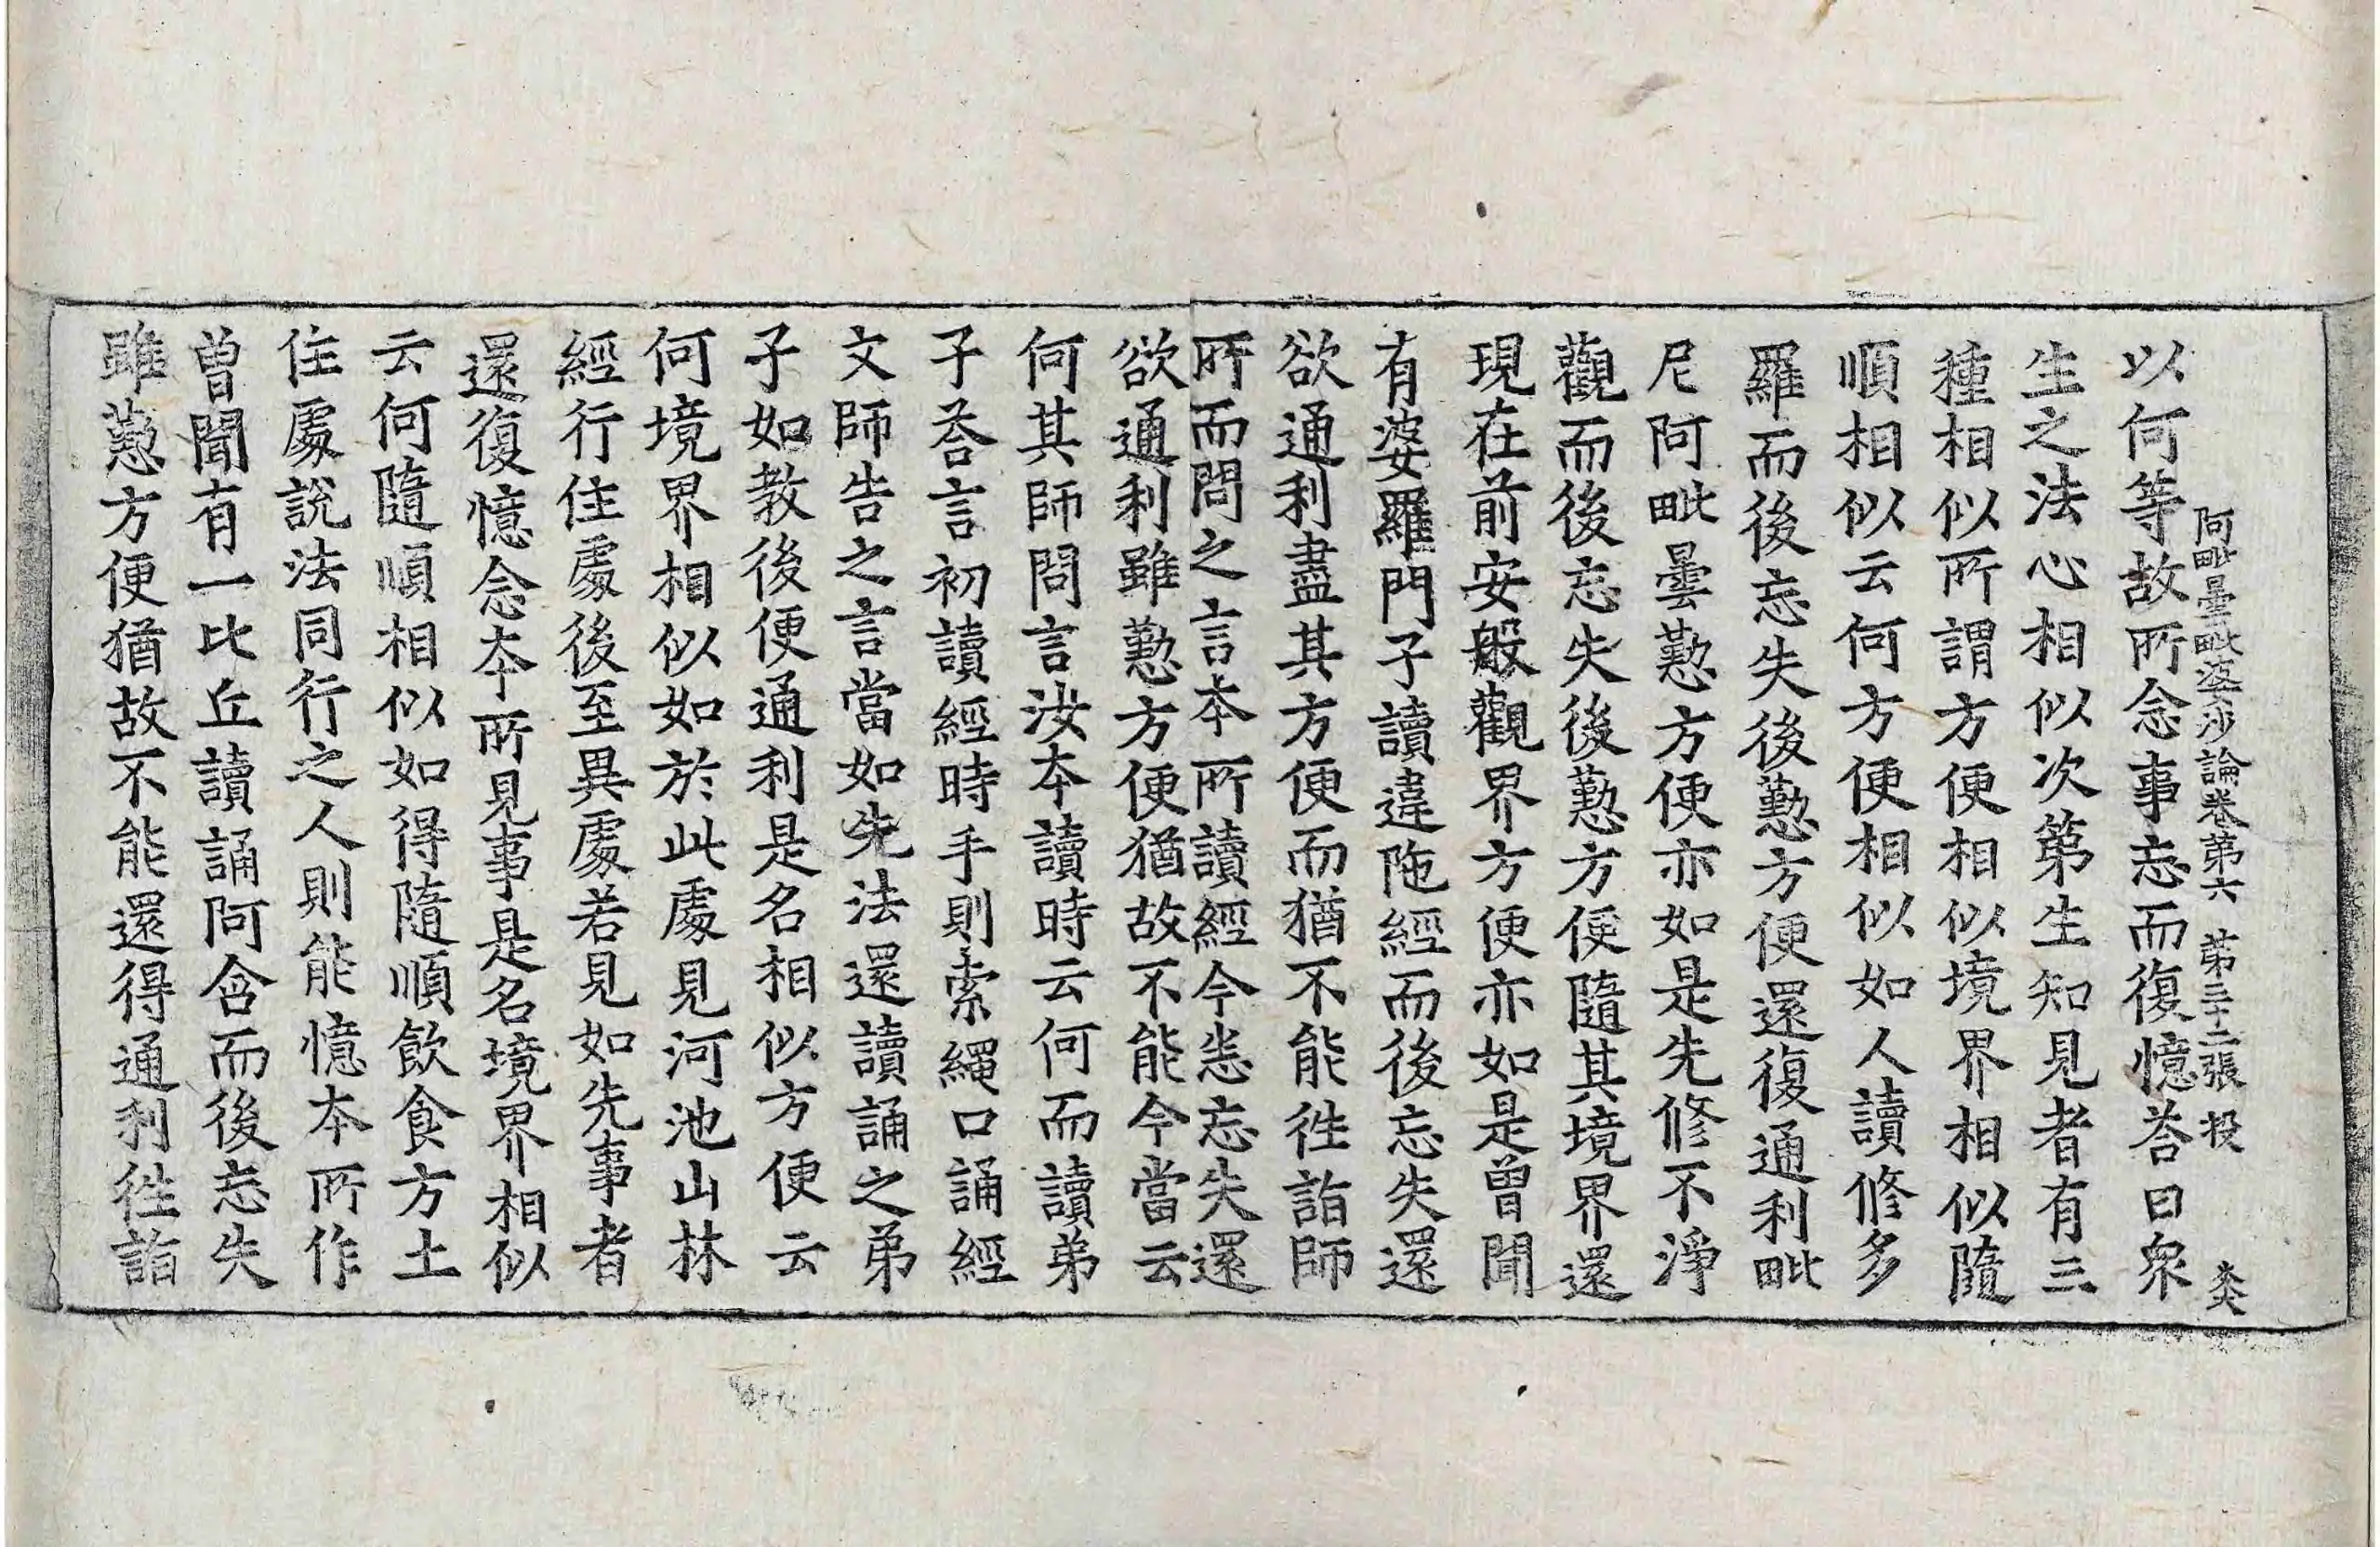 阿毗曇毗婆沙論卷第六 第二十二張 投 大
以何等故所念事忘而復憶荅曰眾
生之法心相似次第生知見者有三
種相似所謂方便相似境界相似隨
順相似云何方便相似如人讀修多
羅而後忘失後懃方便還復通利毗
尼阿毗曇懃方便亦如是先修不淨
觀而後忘失後懃方便隨其境界還
現在前安般觀界方便亦如是曾聞
有婆羅門子讀違陁經而後忘失還
欲通利盡其方便而猶不能徃詣師
所而問之言本所讀經今悉忘失還
欲通利雖懃方便猶故不能今當云
何其師問言汝本讀時云何而讀弟
子荅言初讀經時手則索繩口誦經
文師告之言當如先法還讀誦之弟
子如教後便通利是名相似方便云
何境界相似如於此處見河池山林
經行住處後至異處若見如先事者
還復憶念本所見事是名境界相似
云何隨順相似如得隨順飲食方土
住處說法同行之人則能憶本所作
曾聞有一比丘讀誦阿含而後忘失
雖懃方便猶故不能還得通利徃詣